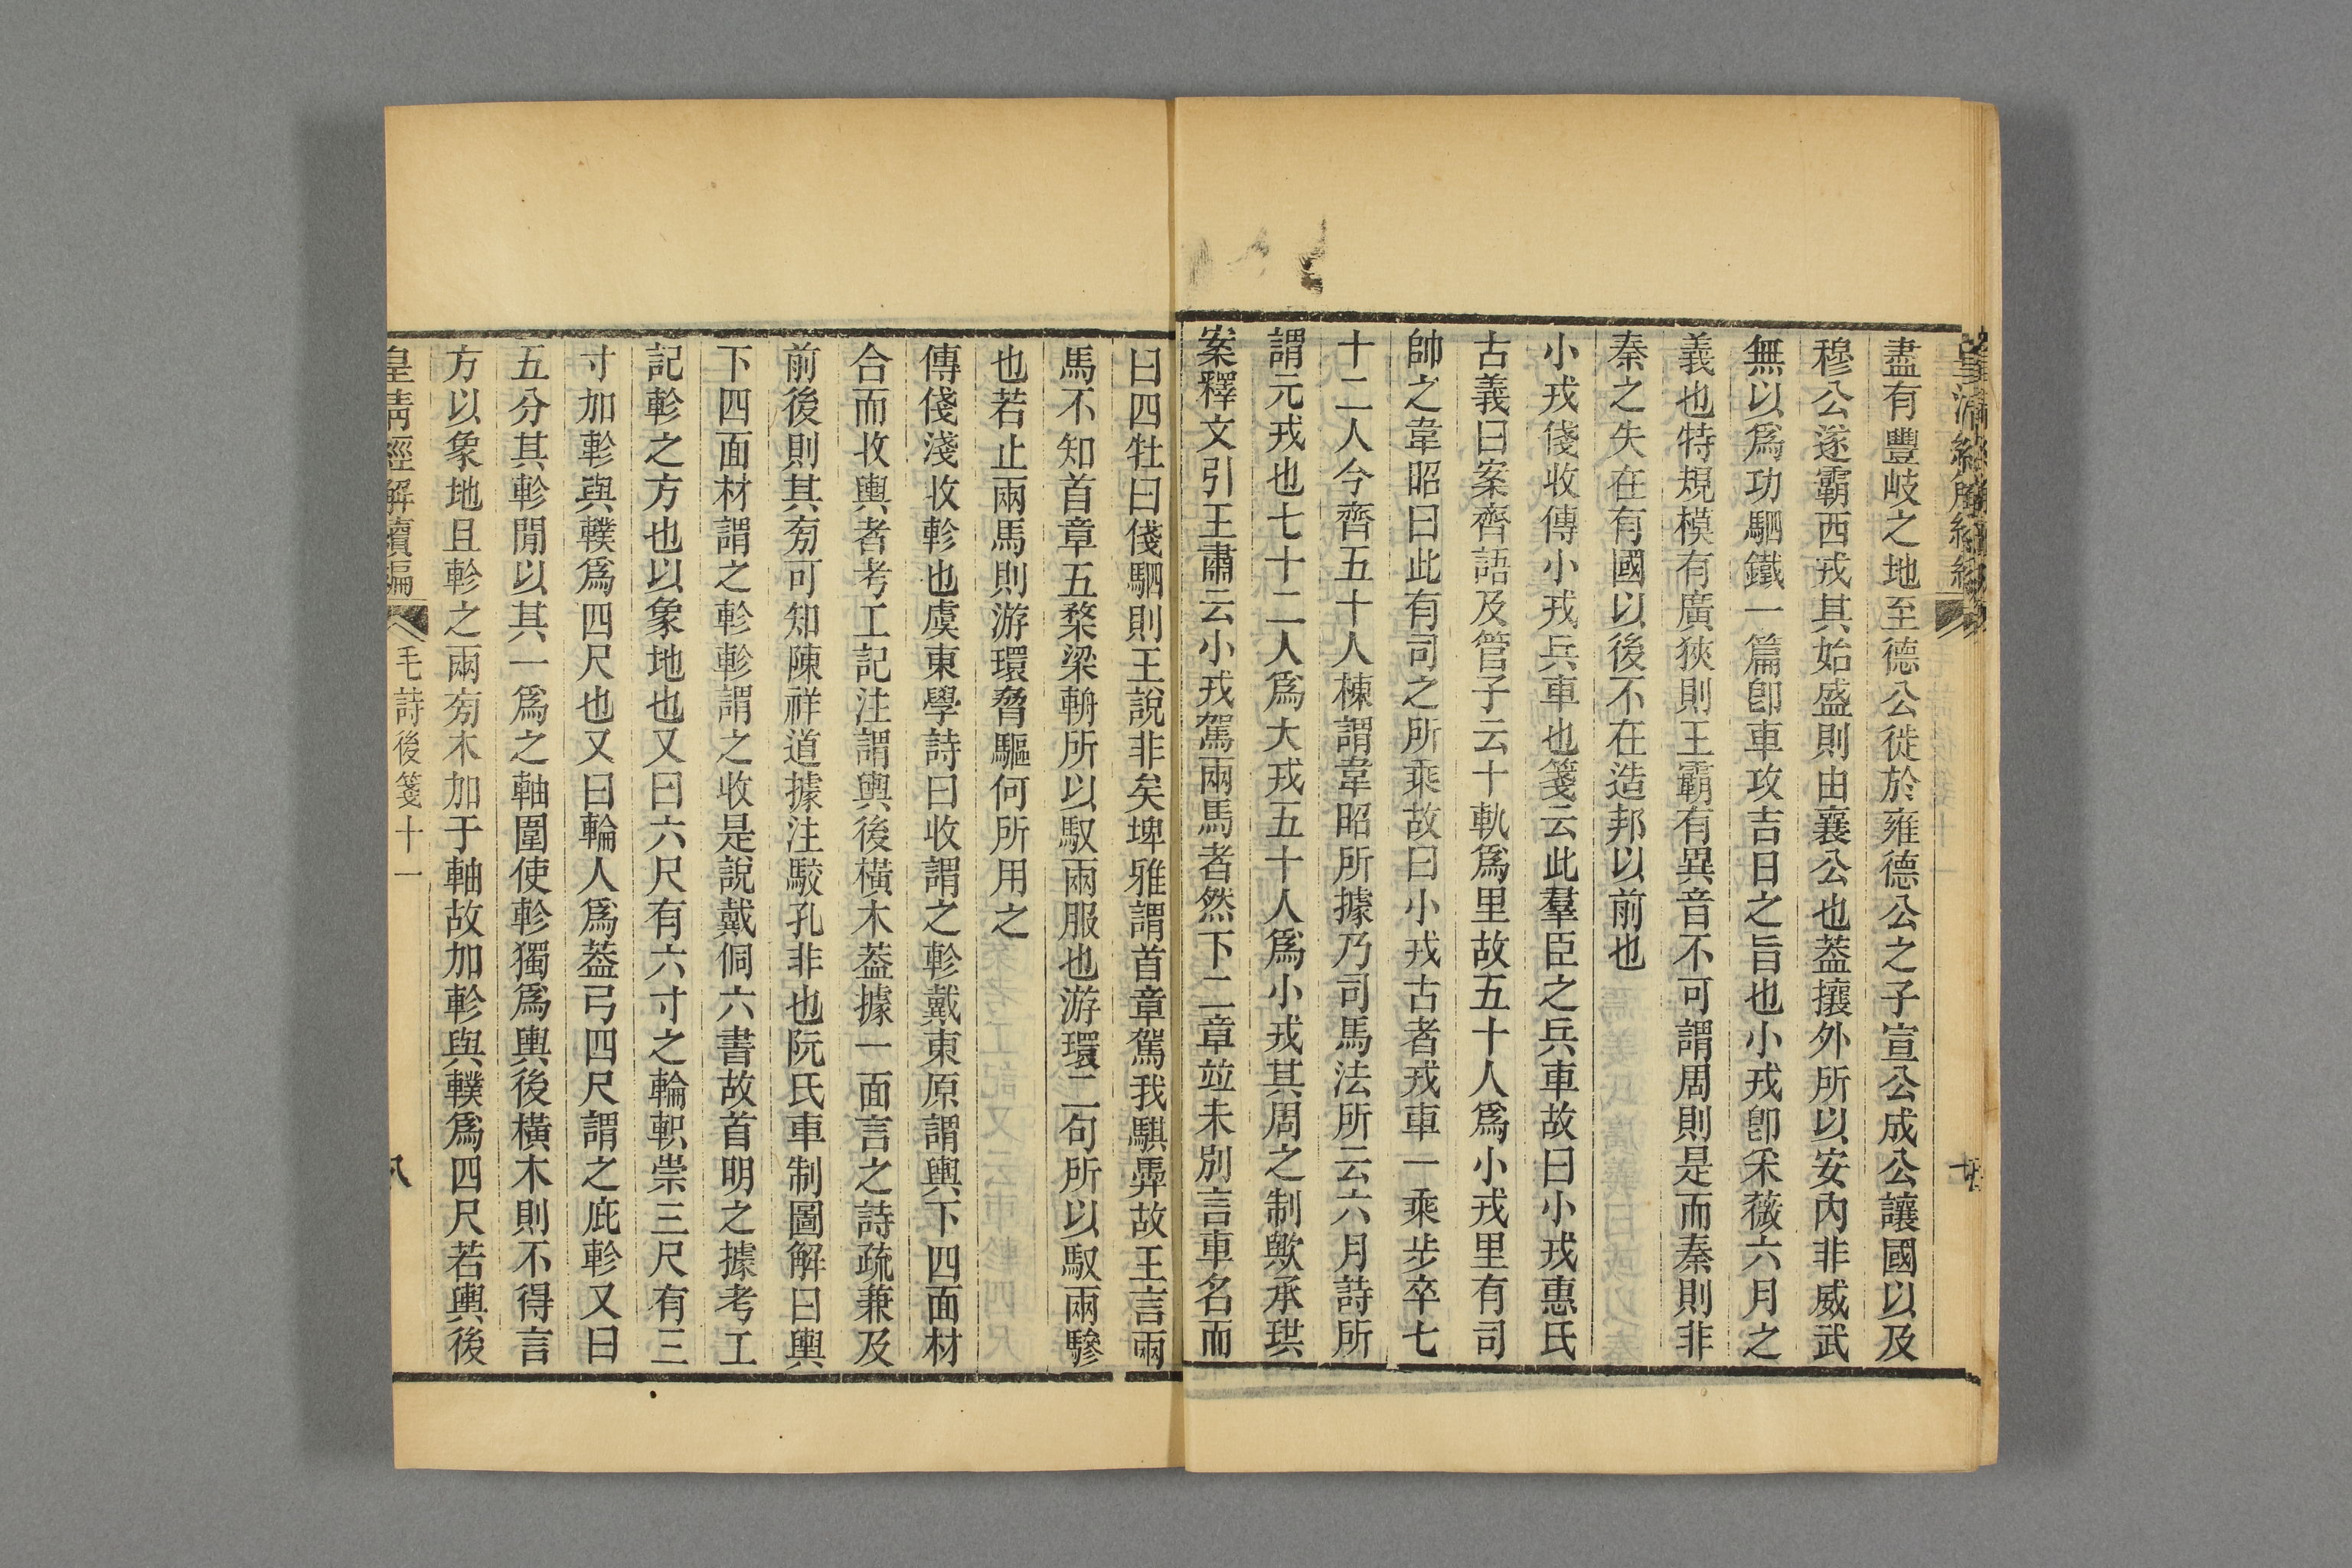 盡有豐岐之地至德公徙於雍德公之子宣公成公讓國以及
穆公遂霸西戎其始盛則由襄公也葢攘外所以安內非威武
無以爲功駟鐵一篇卽車攻吉日之旨也小戎卽采薇六月之
義也特規模有廣狹則王霸有異音不可謂周則是而秦則非
秦之失在有國以後不在造邦以前也
小戎俴收傳小戎兵車也箋云此羣臣之兵車故曰小戎惠氏
古義曰案齊語及管子云十軌爲里故五十人爲小戎里有司
帥之韋昭曰此有司之所乘故曰小戎古者戎車一乘步卒七
十二人今齊五十人棟謂韋昭所據乃司馬法所云六月詩所
謂元戎也七十二人爲大戎五十人爲小戎其周之制歟承珙
案釋文引王肅云小戎駕兩馬者然下二章竝未別言車名而
曰四牡曰俴駟則王說非矣埤雅謂首章駕我騏馵故王言兩
馬不知首章五楘梁輈所以馭兩服也游環二句所以馭兩驂
也若止兩馬則游環脅驅何所用之
傳俴淺收軫也虞東學詩曰收謂之軫戴東原謂輿下四面材
合而收輿者考工記注謂輿後橫木葢據一面言之詩疏兼及
前後則其㫄可知陳祥道據注駮孔非也阮氏車制圖解曰輿
下四面材謂之軫軫謂之收是說戴侗六書故首明之據考工
記軫之方也以象地也又曰六尺有六寸之輪軹崇三尺有三
寸加軫與轐爲四尺也又曰輪人爲葢弓四尺謂之庇軫又曰
五分其軫閒以其一爲之軸圍使軫獨爲輿後橫木則不得言
方以象地且軫之兩㫄木加于軸故加軫與轐爲四尺若輿後
皇淸經解續編
毛詩後箋十一
八